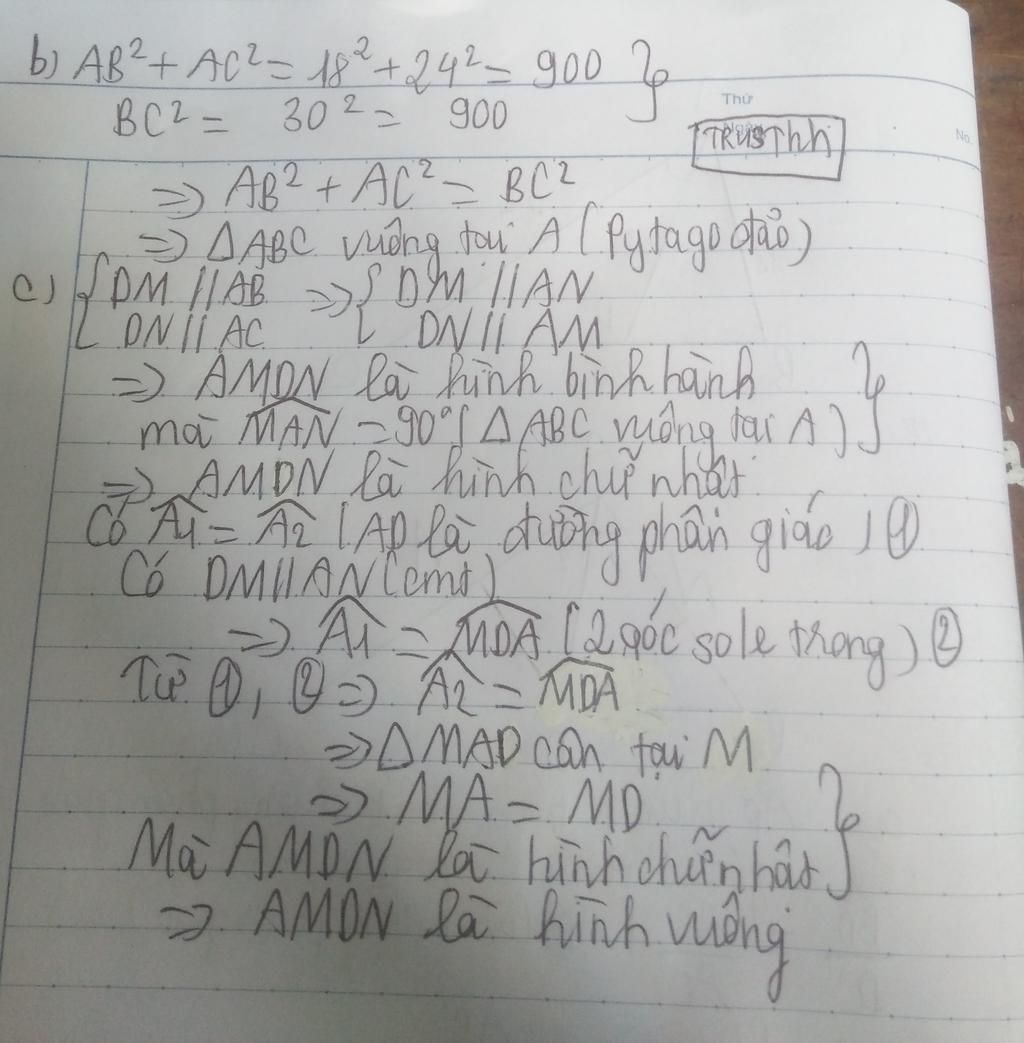 b) AB² + AC² = 18² + 24² = 900 }
BC² = 30² = 900
Thứ
No.
TRUSThh
=> AB² + AC² = BC²
=> ΔABC vuông tại A (Pytago đảo)
c) { DM // AB => { DM // AN
{ DN // AC { DN // AM
=> AMDN là hình bình hành }
mà MAN = 90° ( ΔABC vuông tại A )
=> AMDN là hình chữ nhật
Có A1 = A2 (AD là đường phân giác) ①
Có DM // AN (cmt)
=> A1 = MDA (2 góc sole trong) ②
Từ ①, ② => A2 = MDA
=> ΔMAD cân tại M
=> MA = MD }
Mà AMDN là hình chữ nhật
=> AMDN là hình vuông